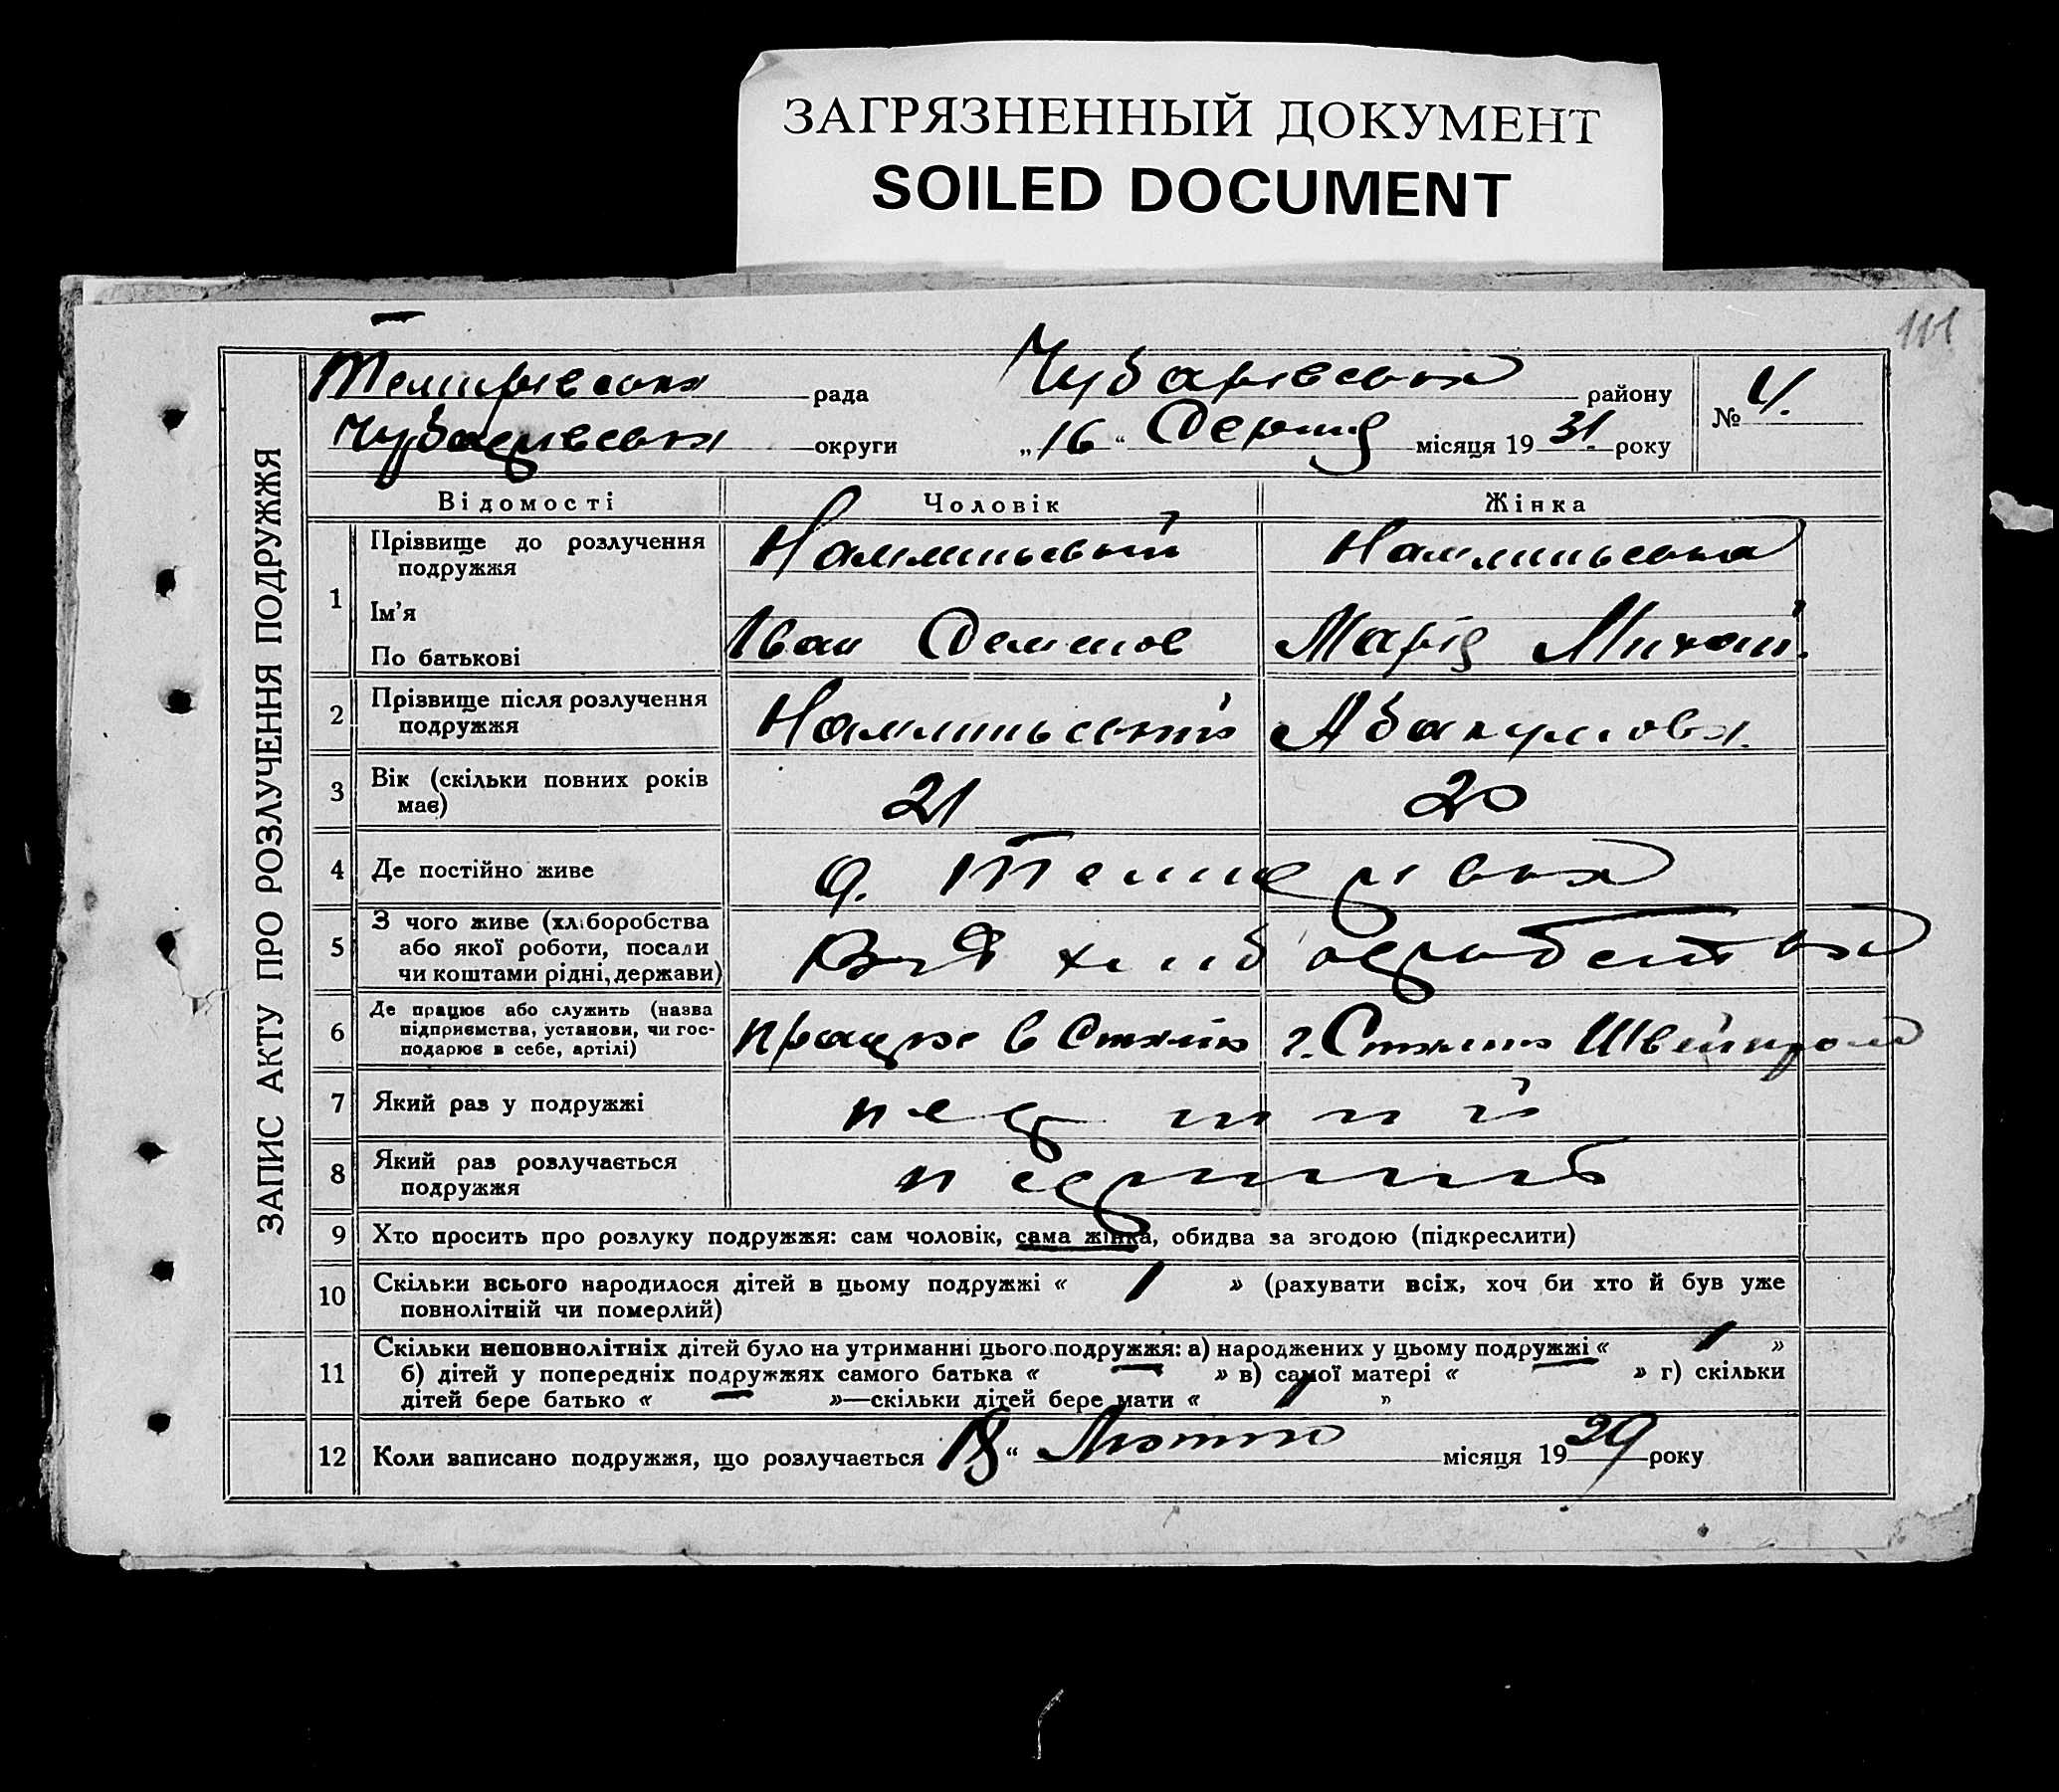 ЗАГРЯЗНЕННЫЙ ДОКУМЕНТ
SOILED DOCUMENT
101
Темирівська рада Чубарівська району № 4.
Чубарівська округи „16“ Серпня місяця 19 31 року
ЗАПИС АКТУ ПРО РОЗЛУЧЕННЯ ПОДРУЖЖЯ
Відомості Чоловік Жінка
1 Прізвище до розлучення
подружжя
Ім'я
По батькові Іван Семенов Марія Михай.
2 Прізвище після розлучення
подружжя Абакумова.
3 Вік (скільки повних років
має) 21 20
4 Де постійно живе с. Темерівка
5 З чого живе (хліборобства
або якої роботи, посади
чи коштами рідні, держави) Від
6 Де працює або служить (назва
підприємства, установи, чи гос-
подарює в себе, артілі) працює в г. Сталино Швейпром
7 Який раз у подружжі перший
8 Який раз розлучається
подружжя перший
9 Хто просить про розлуку подружжя: сам чоловік, сама жінка, обидва за згодою (підкреслити)
10 Скільки всього народилося дітей в цьому подружжі « 1 » (рахувати всіх, хоч би хто й був уже
повнолітній чи померлий)
11 Скільки неповнолітніх дітей було на утриманні цього подружжя: а) народжених у цьому подружжі « 1 »
б) дітей у попередніх подружжях самого батька « — » в) самої матері « — » г) скільки
дітей бере батько « — »—скільки дітей бере мати « 1 »
12 Коли записано подружжя, що розлучається 18 “ Лютого місяця 19 29 року